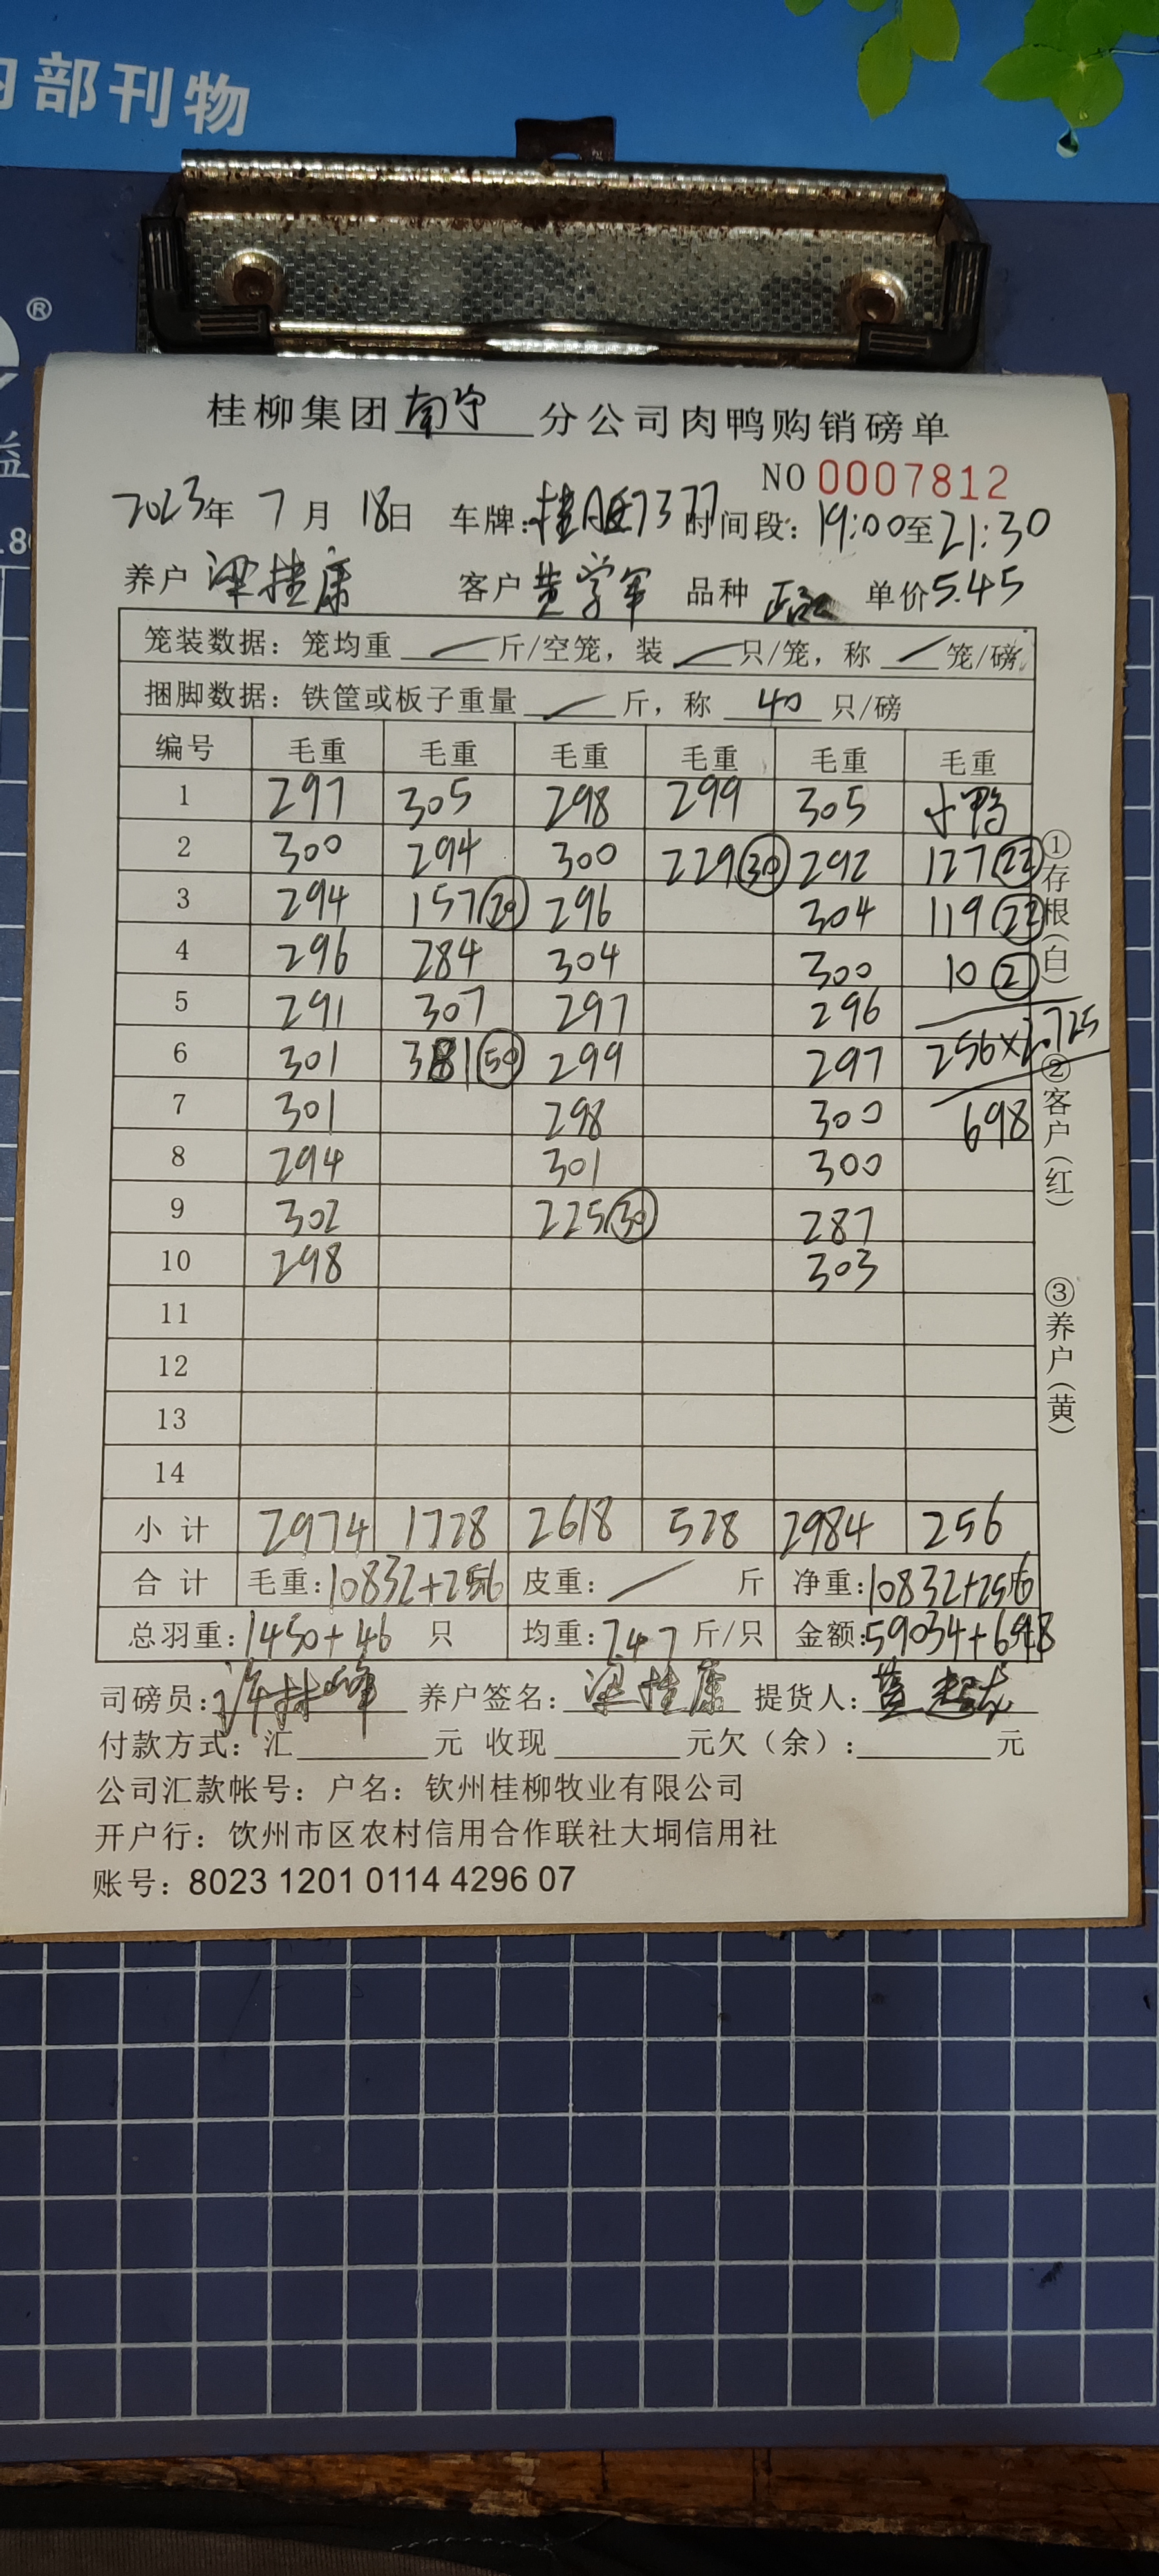 内部刊物
®
益
.8
桂柳集团南宁分公司肉鸭购销磅单
NO 0007812
2023年 7月 18日 车牌:桂 7377 时间段:19:00至21:30
养户 梁桂康 客户 黄学军 品种 单价5.45
笼装数据:笼均重 / 斤/空笼,装 / 只/笼,称 / 笼/磅
捆脚数据:铁筐或板子重量 / 斤,称 40 只/磅
编号 毛重 毛重 毛重 毛重 毛重 毛重
1 297 305 298 299 305 小鸭
2 300 294 300 229(30) 292 127(22)
3 294 157(20) 296 304 119(22)
4 296 284 304 300 10(2)
5 291 307 297 296
6 301 381(50) 299 297 256×2.725
7 301 298 300 698
8 294 301 300
9 302 225(30) 287
10 298 303
11
12
13
14
小计 2974 1728 2618 528 2984 256
合计 毛重:10832+256 皮重: / 斤 净重:10832+256
总羽重:1450+46 只 均重:7.47 斤/只 金额:59034+698
司磅员:许林峰 养户签名:梁桂康 提货人:黄
付款方式:汇 元 收现 元欠(余): 元
公司汇款帐号:户名:钦州桂柳牧业有限公司
开户行:钦州市区农村信用合作联社大垌信用社
账号:8023 1201 0114 4296 07
①存根(白)
②客户(红)
③养户(黄)